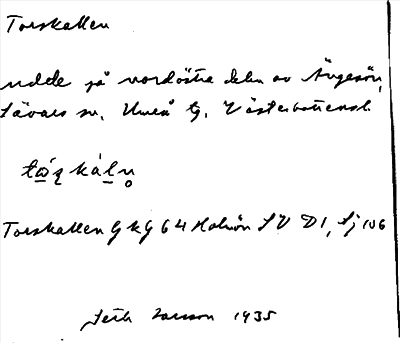 Torskallen
udde på nordöstra delen av Ängesön,
Sävars sn, Umeå tg, Västerbottens l.
tɷ́ʂkàḷn̥
Torskallen GKG 64 Holmön SV D1, Sj 106
Seth Larsson 1935